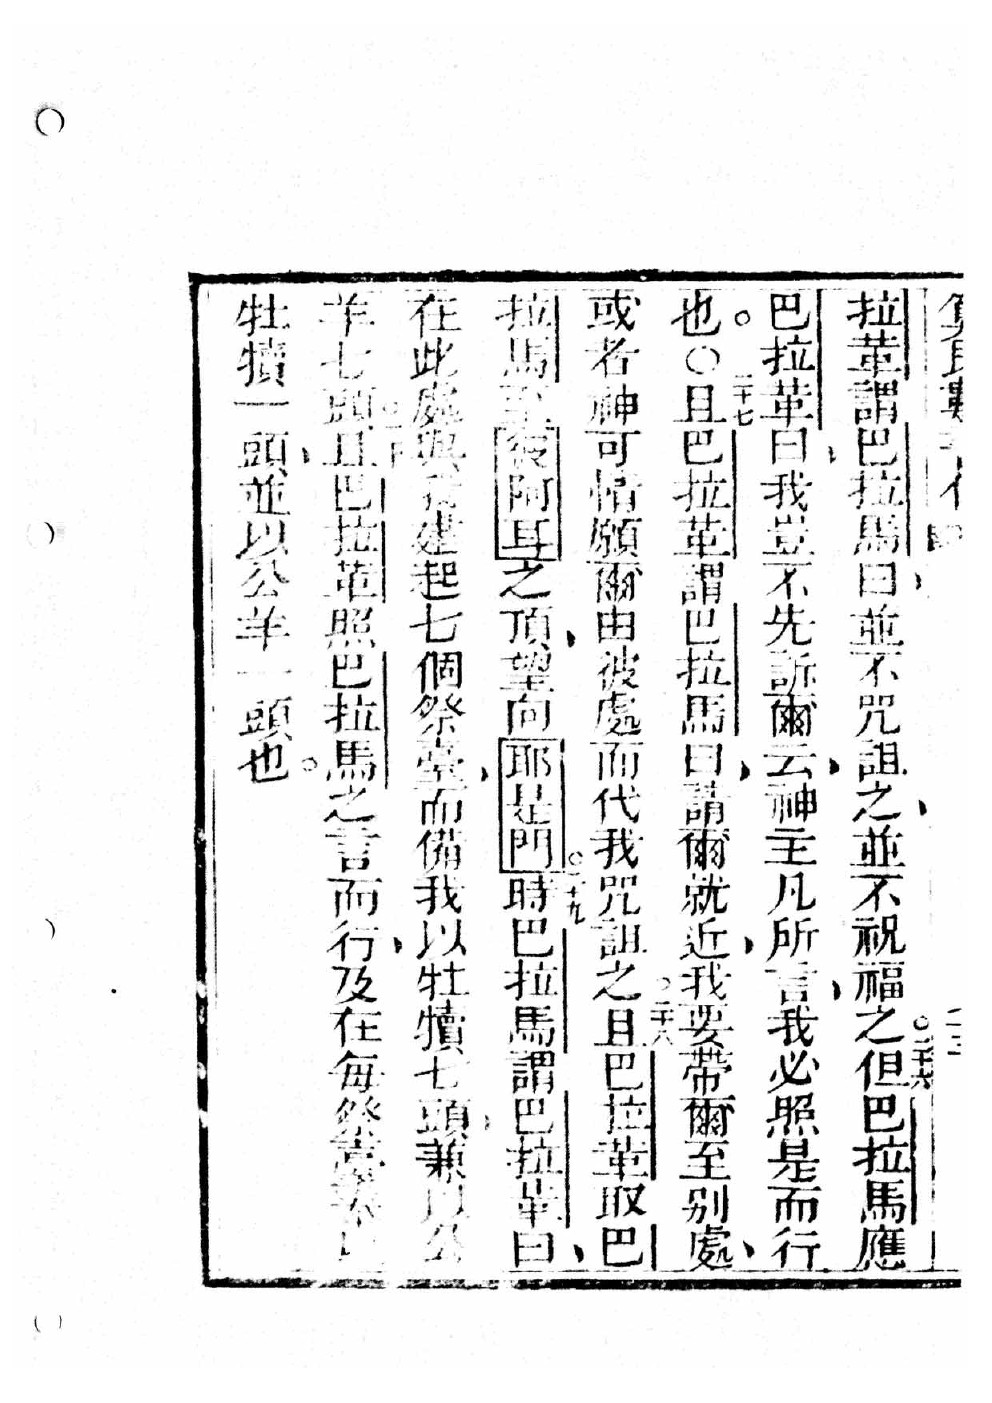 民數
拉革謂巴拉馬曰並不咒詛之並不祝福之二十六但巴拉馬應
巴拉革曰我豈不先訴爾云神主凡所言我必照是而行
也。〇二十七且巴拉革謂巴拉馬曰請爾就近我要帶爾至别處
或者神可情願爾由彼處而代我咒詛之二十八且巴拉革取巴
拉馬至彼阿耳之頂望向耶是門二十九時巴拉馬謂巴拉革曰
在此處與我建起七個祭臺而備我以牡犢七頭兼以公
羊七頭且巴拉革照巴拉馬之言而行及在每祭臺奉
牡犢一頭並以公羊一頭也。